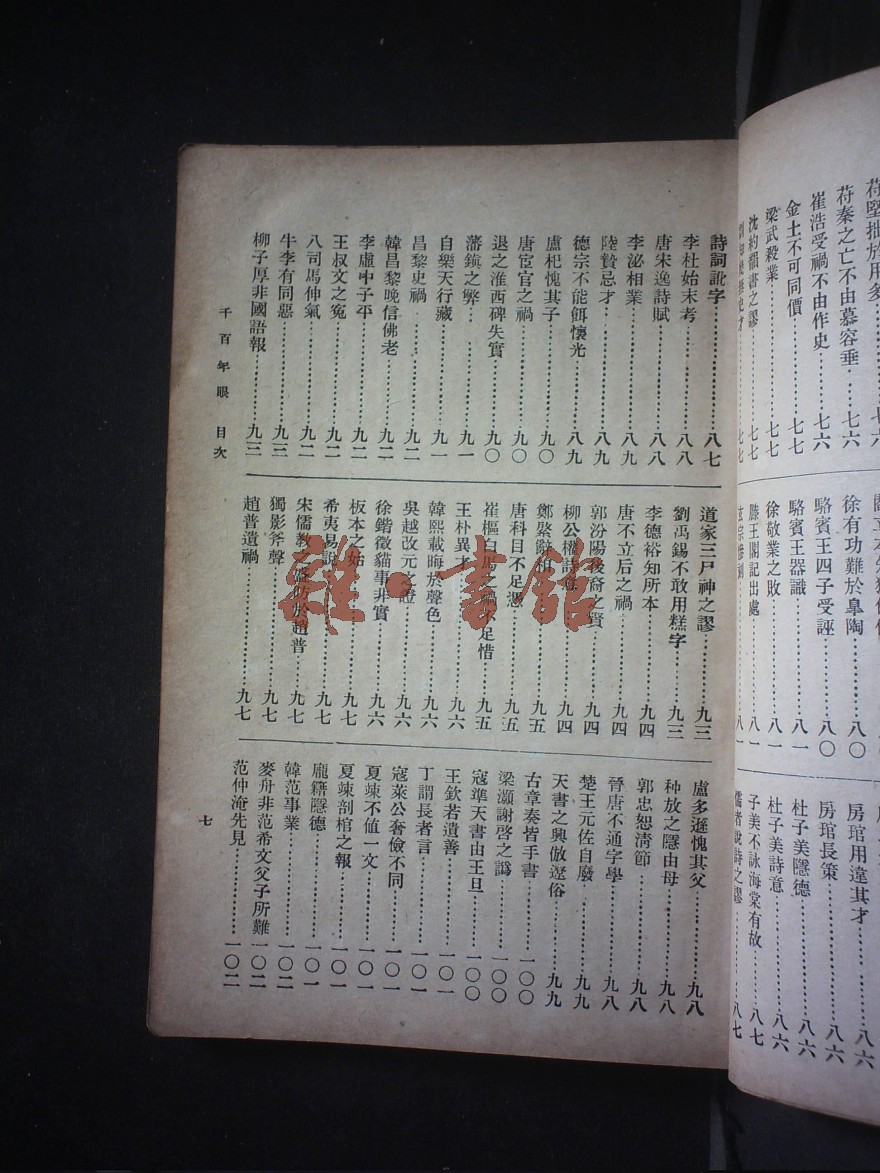 苻堅拙於用多……七六
苻秦之亡不由慕容垂……七六
崔浩受禍不由作史……七六
金土不可同價……七七
梁武殺業……七七
沈約韻書之謬……七七
史才……七七
徐有功難於臯陶……八〇
駱賓王四子受誣……八〇
駱賓王器識……八一
徐敬業之敗……八一
滕王閣記出處……八一
八一
房琯用違其才……八六
房琯長策……八六
杜子美隱德……八六
杜子美詩意……八六
子美不詠海棠有故……八七
儒者說詩之謬……八七
詩詞訛字……八七
李杜始末考……八八
唐宋逸詩賦……八八
李泌相業……八九
陸贄忌才……八九
德宗不能餌懷光……八九
盧杞愧其子……九〇
唐宦官之禍……九〇
退之淮西碑失實……九〇
藩鎮之弊……九一
自樂天行藏……九一
昌黎史禍……九二
韓昌黎晚信佛老……九二
李虛中子平……九二
王叔文之冤……九二
八司馬伸氣……九二
牛李有同惡……九三
柳子厚非國語報……九三
道家三尸神之謬……九三
劉禹錫不敢用糕字……九三
李德裕知所本……九四
唐不立后之禍……九四
郭汾陽後裔之賢……九四
柳公權詩……九四
鄭綮辭相……九五
唐科目不足憑……九五
崔樞白馬之禍不足惜……九五
王朴異才……九六
韓熙載晦於聲色……九六
吳越改元之證……九六
徐鍇徵貓事非實……九六
板本之始……九七
希夷易說……九七
宋儒教之盛防於趙普……九七
獨影斧聲……九七
趙普遺禍……九七
盧多遜愧其父……九八
种放之隱由母……九八
郭忠恕清節……九八
晉唐不通字學……九八
楚王元佐自廢……九九
天書之興倣遼俗……九九
古章奏皆手書……一〇〇
梁灝謝啓之譌……一〇〇
寇準天書由王旦……一〇〇
王欽若遺善……一〇一
丁謂長者言……一〇一
寇萊公奢儉不同……一〇一
夏竦不値一文……一〇一
夏竦剖棺之報……一〇一
龐籍隱德……一〇一
韓范事業……一〇二
麥舟非范希文父子所難……一〇二
范仲淹先見……一〇二
千百年眼 目次
七
雜·書館